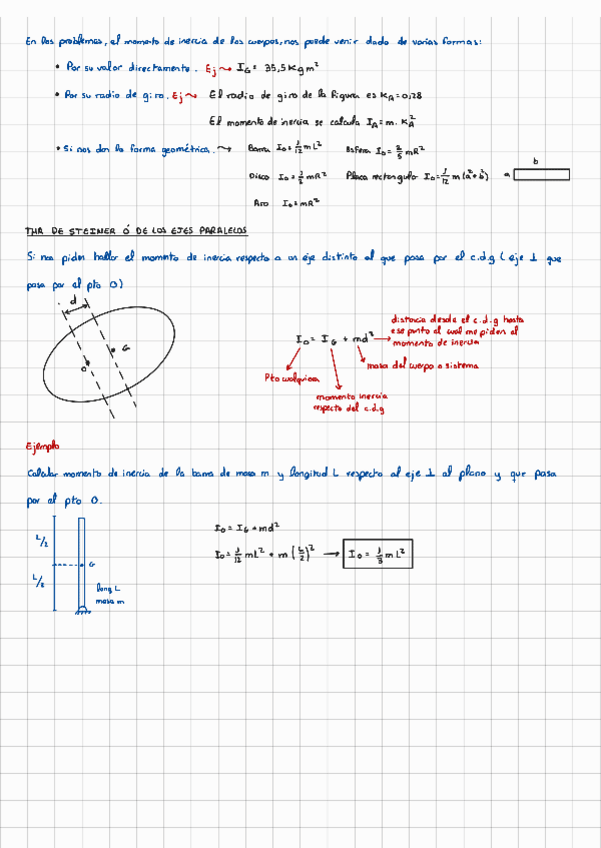 En los problemas, el momento de inercia de los cuerpos, nos puede venir dado de varias formas:
• Por su valor directamente. Ej → I_G = 35,5 kg m²
• Por su radio de giro. Ej → El radio de giro de la figura es K_A = 0,28
El momento de inercia se calcula I_A = m. K_A²
• Si nos dan la forma geométrica. → Barra I_O = 1/12 mL² Esfera I_O = 2/5 mR²
b
Disco I_O = 1/2 mR² Placa rectangulo I_O = 1/12 m (a² + b²) a
Aro I_O = mR²
TMA DE STEINER Ó DE LOS EJES PARALELOS
Si nos piden hallar el momento de inercia respecto a un eje distinto al que pasa por el c.d.g (eje ⊥ que
pasa por el pto O)
d
G
O
I_O = I_G + md²
distancia desde el c.d.g hasta
ese punto al cual me piden el
momento de inercia
masa del cuerpo o sistema
Pto cualquiera
momento inercia
respecto del c.d.g
Ejemplo
Calcular momento de inercia de la barra de masa m y longitud L respecto al eje ⊥ al plano y que pasa
por el pto O.
L/2
G
L/2
long L
masa m
I_O = I_G + md²
I_O = 1/12 mL² + m (L/2)² → I_O = 1/3 mL²